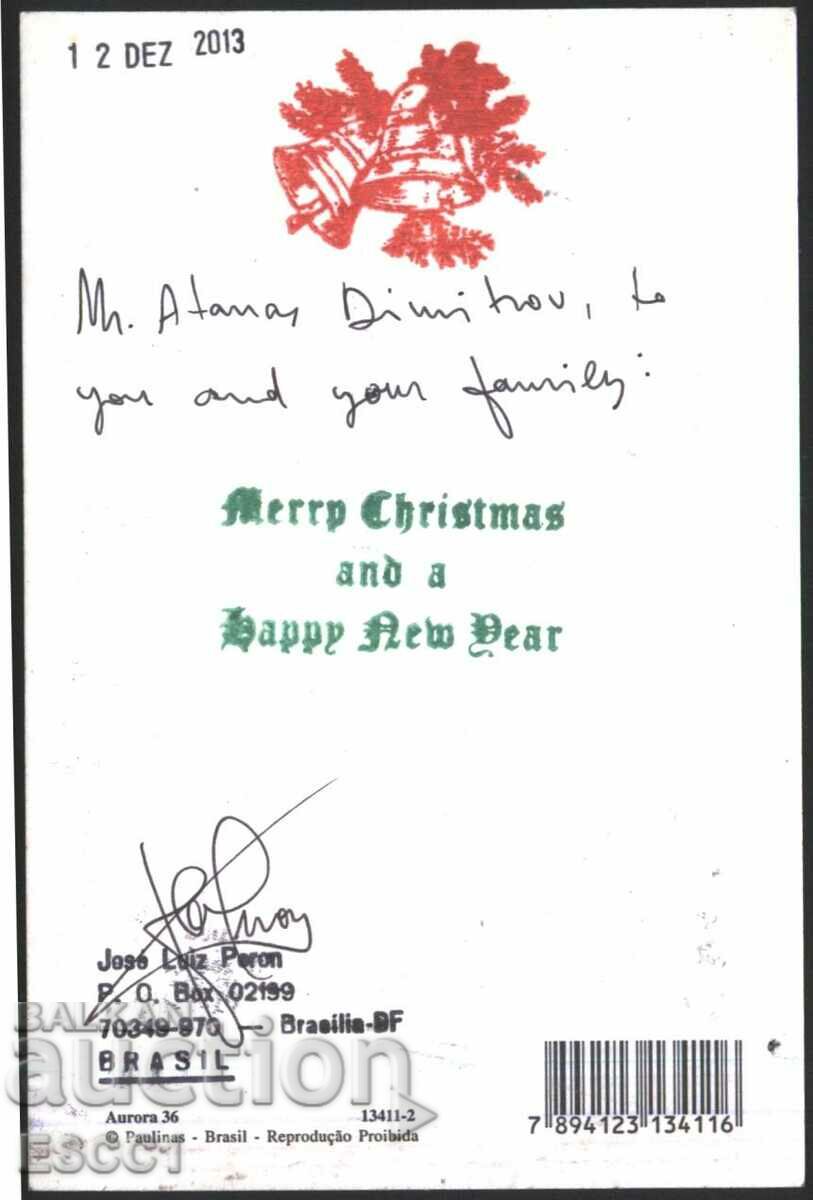 12 DEZ 2013
Mr. Atanas Dimitrov, to
you and your family:
Merry Christmas
and a
Happy New Year
José Luiz Peron
P. O. Box 02199
70349-970 — Brasília-DF
BRASIL
BALKAN
auction
Aurora 36 13411-2
© Paulinas - Brasil - Reprodução Proibida
7 894123 134116
ESCC1